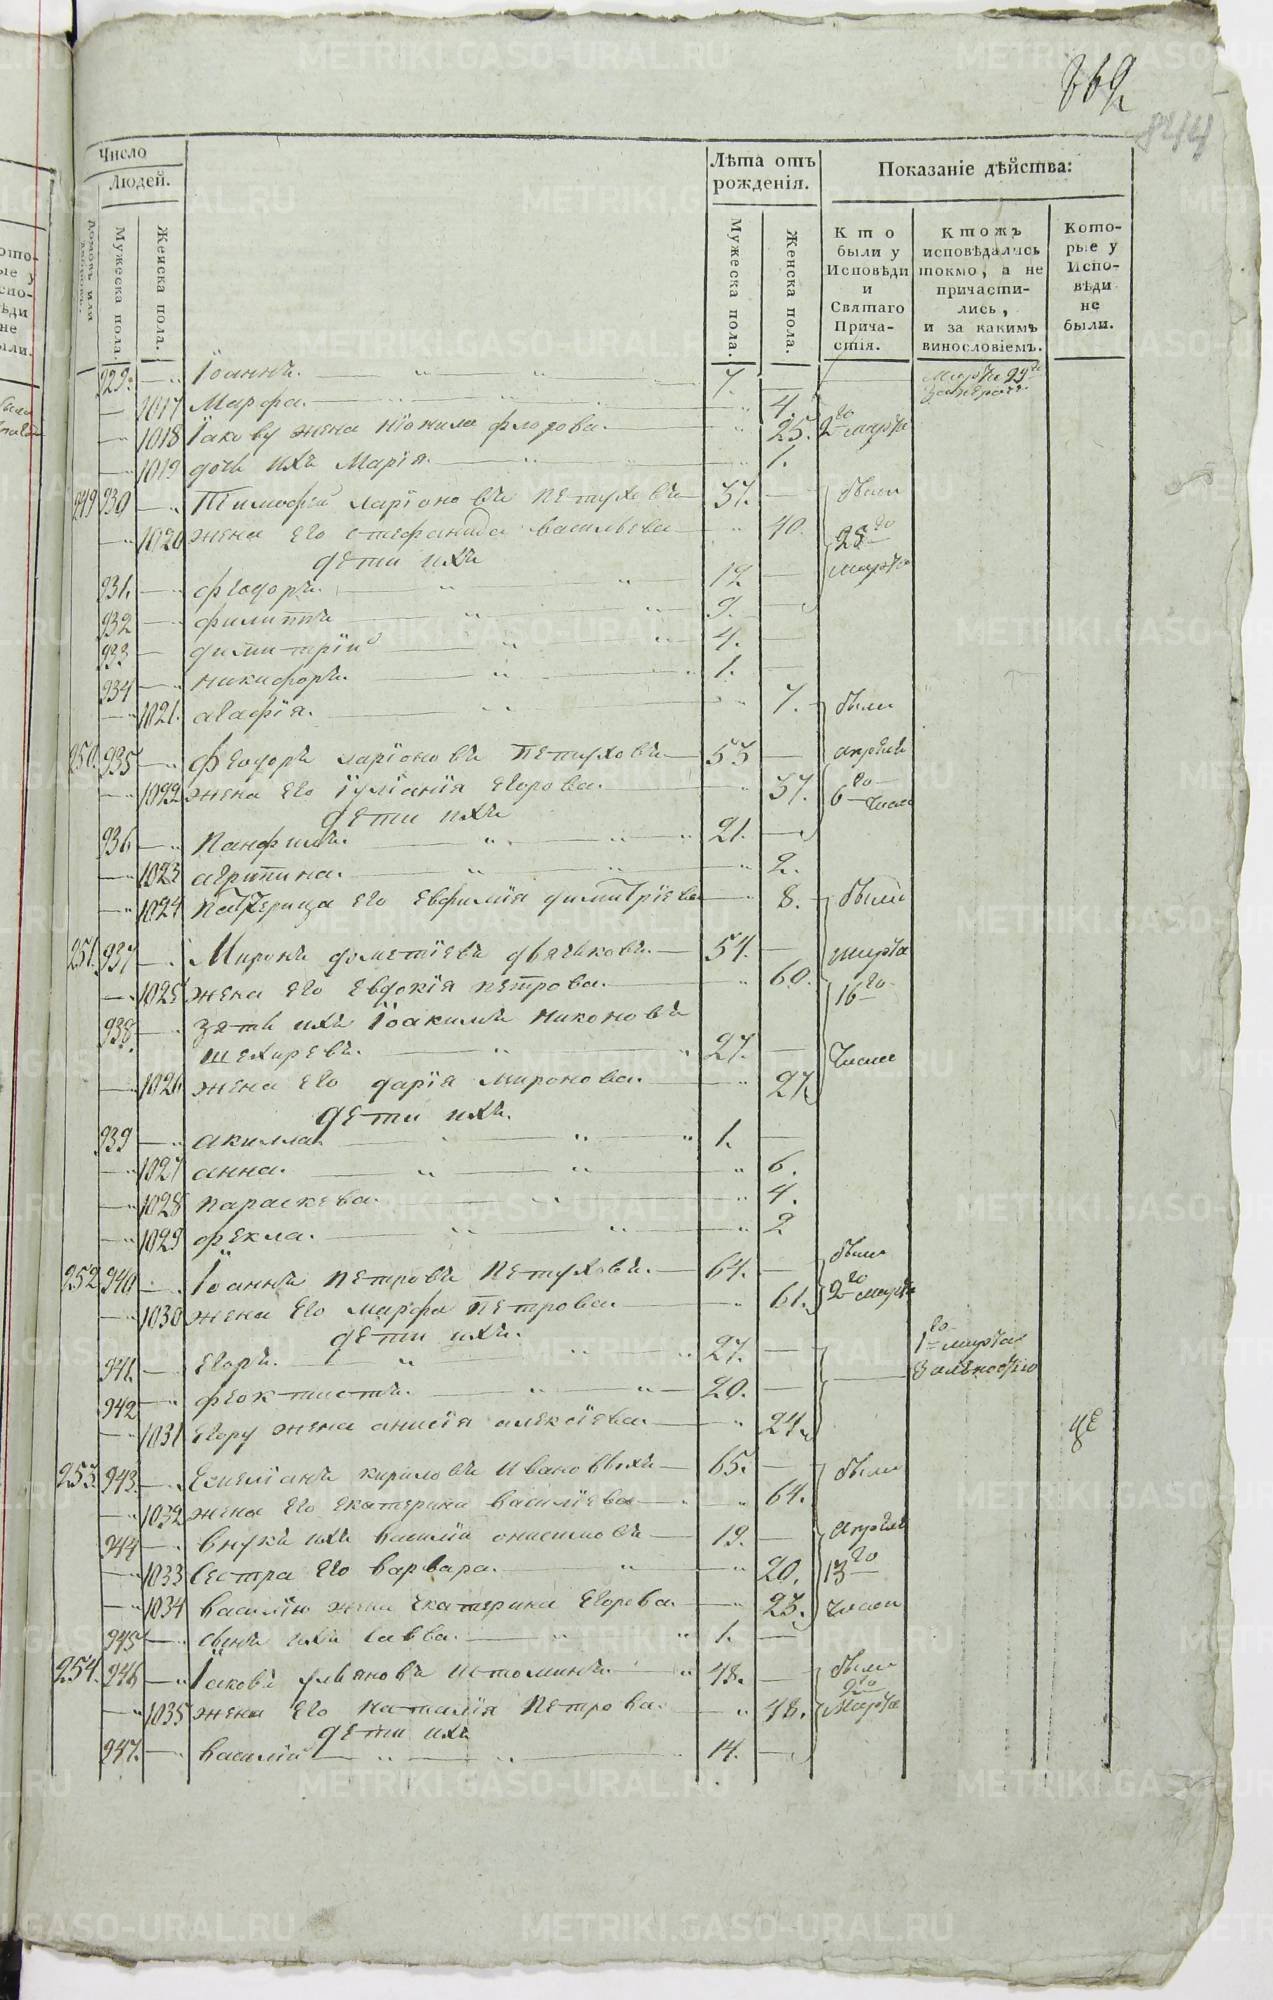 869
844
Число
Людей.
Домовъ или дворовъ.
Мужеска пола.
Женска пола.
Лѣта отъ рожденія.
Мужеска пола.
Женска пола.
Показаніе дѣйства:
Кто были у Исповѣди и Святаго Причастія.
Ктожъ исповѣдались токмо, а не причастились, и за какимъ винословіемъ.
Которые у Исповѣди не были.
929. Іоаннъ. 7. марта 29го
1017 Марфа. 4.
1018 Іакову жена Неонила Флорова. 25. 2го марта
1019 дочь ихъ Марія. 1.
249 930 Тимофей Ларіоновъ Петуховъ 37. были
1020 жена его Стефанида Васильева 40. 28го
дети ихъ марта
931. Феодоръ. 12
932 Филиппъ 9.
933 Димитрій 4.
934 Никифоръ. 1.
1021. Агафія. 7. были
250. 935 Феодоръ Ларіоновъ Петуховъ 53 апреля
1022 жена его Іуліанія Егорова. 37. 6го числа
дети ихъ
936 Панфилъ. 21.
1023 Агрипина. 2.
1024 Падчерица его Евфимія Димитріева 8. были
251. 937 Миронъ Дометіевъ Двячковъ. 54. марта
1025 жена его Евдокія Петрова. 60. 16го
938. зять ихъ Іоакимъ Никоновъ
Шехиревъ. 27. числа
1026 жена его Дарія Миронова. 27.
дети ихъ.
939 Акилла. 1.
1027 Анна. 6.
1028 Параскева. 4.
1029 Фекла. 2
252 940 Іоаннъ Петровъ Петуховъ. 64. были
1030 жена его Марфа Петрова. 61. 2го марта
дети ихъ. 1го марта
941. Егоръ. 27. за
942 Феоктистъ. 20.
1031 Егору жена Анисія Алексіева. 24.
253. 943. Емеліанъ Кириловъ Ивановыхъ 65. были
1032 жена его Екатерина Василіева 64.
944 внукъ ихъ Василій Онисимовъ 19. апреля
1033 Сестра его Варвара. 20. 13го
1034 Василію жена Екатерина Егорова. 23. числа
945 сынъ ихъ Савва. 1.
254. 946 Іаковъ Ульяновъ Истоминъ. 48. были 2го
1035 жена его Наталія Петрова. 48. Марта
дети ихъ
947. Василій 14.
METRIKI.GASO-URAL.RU